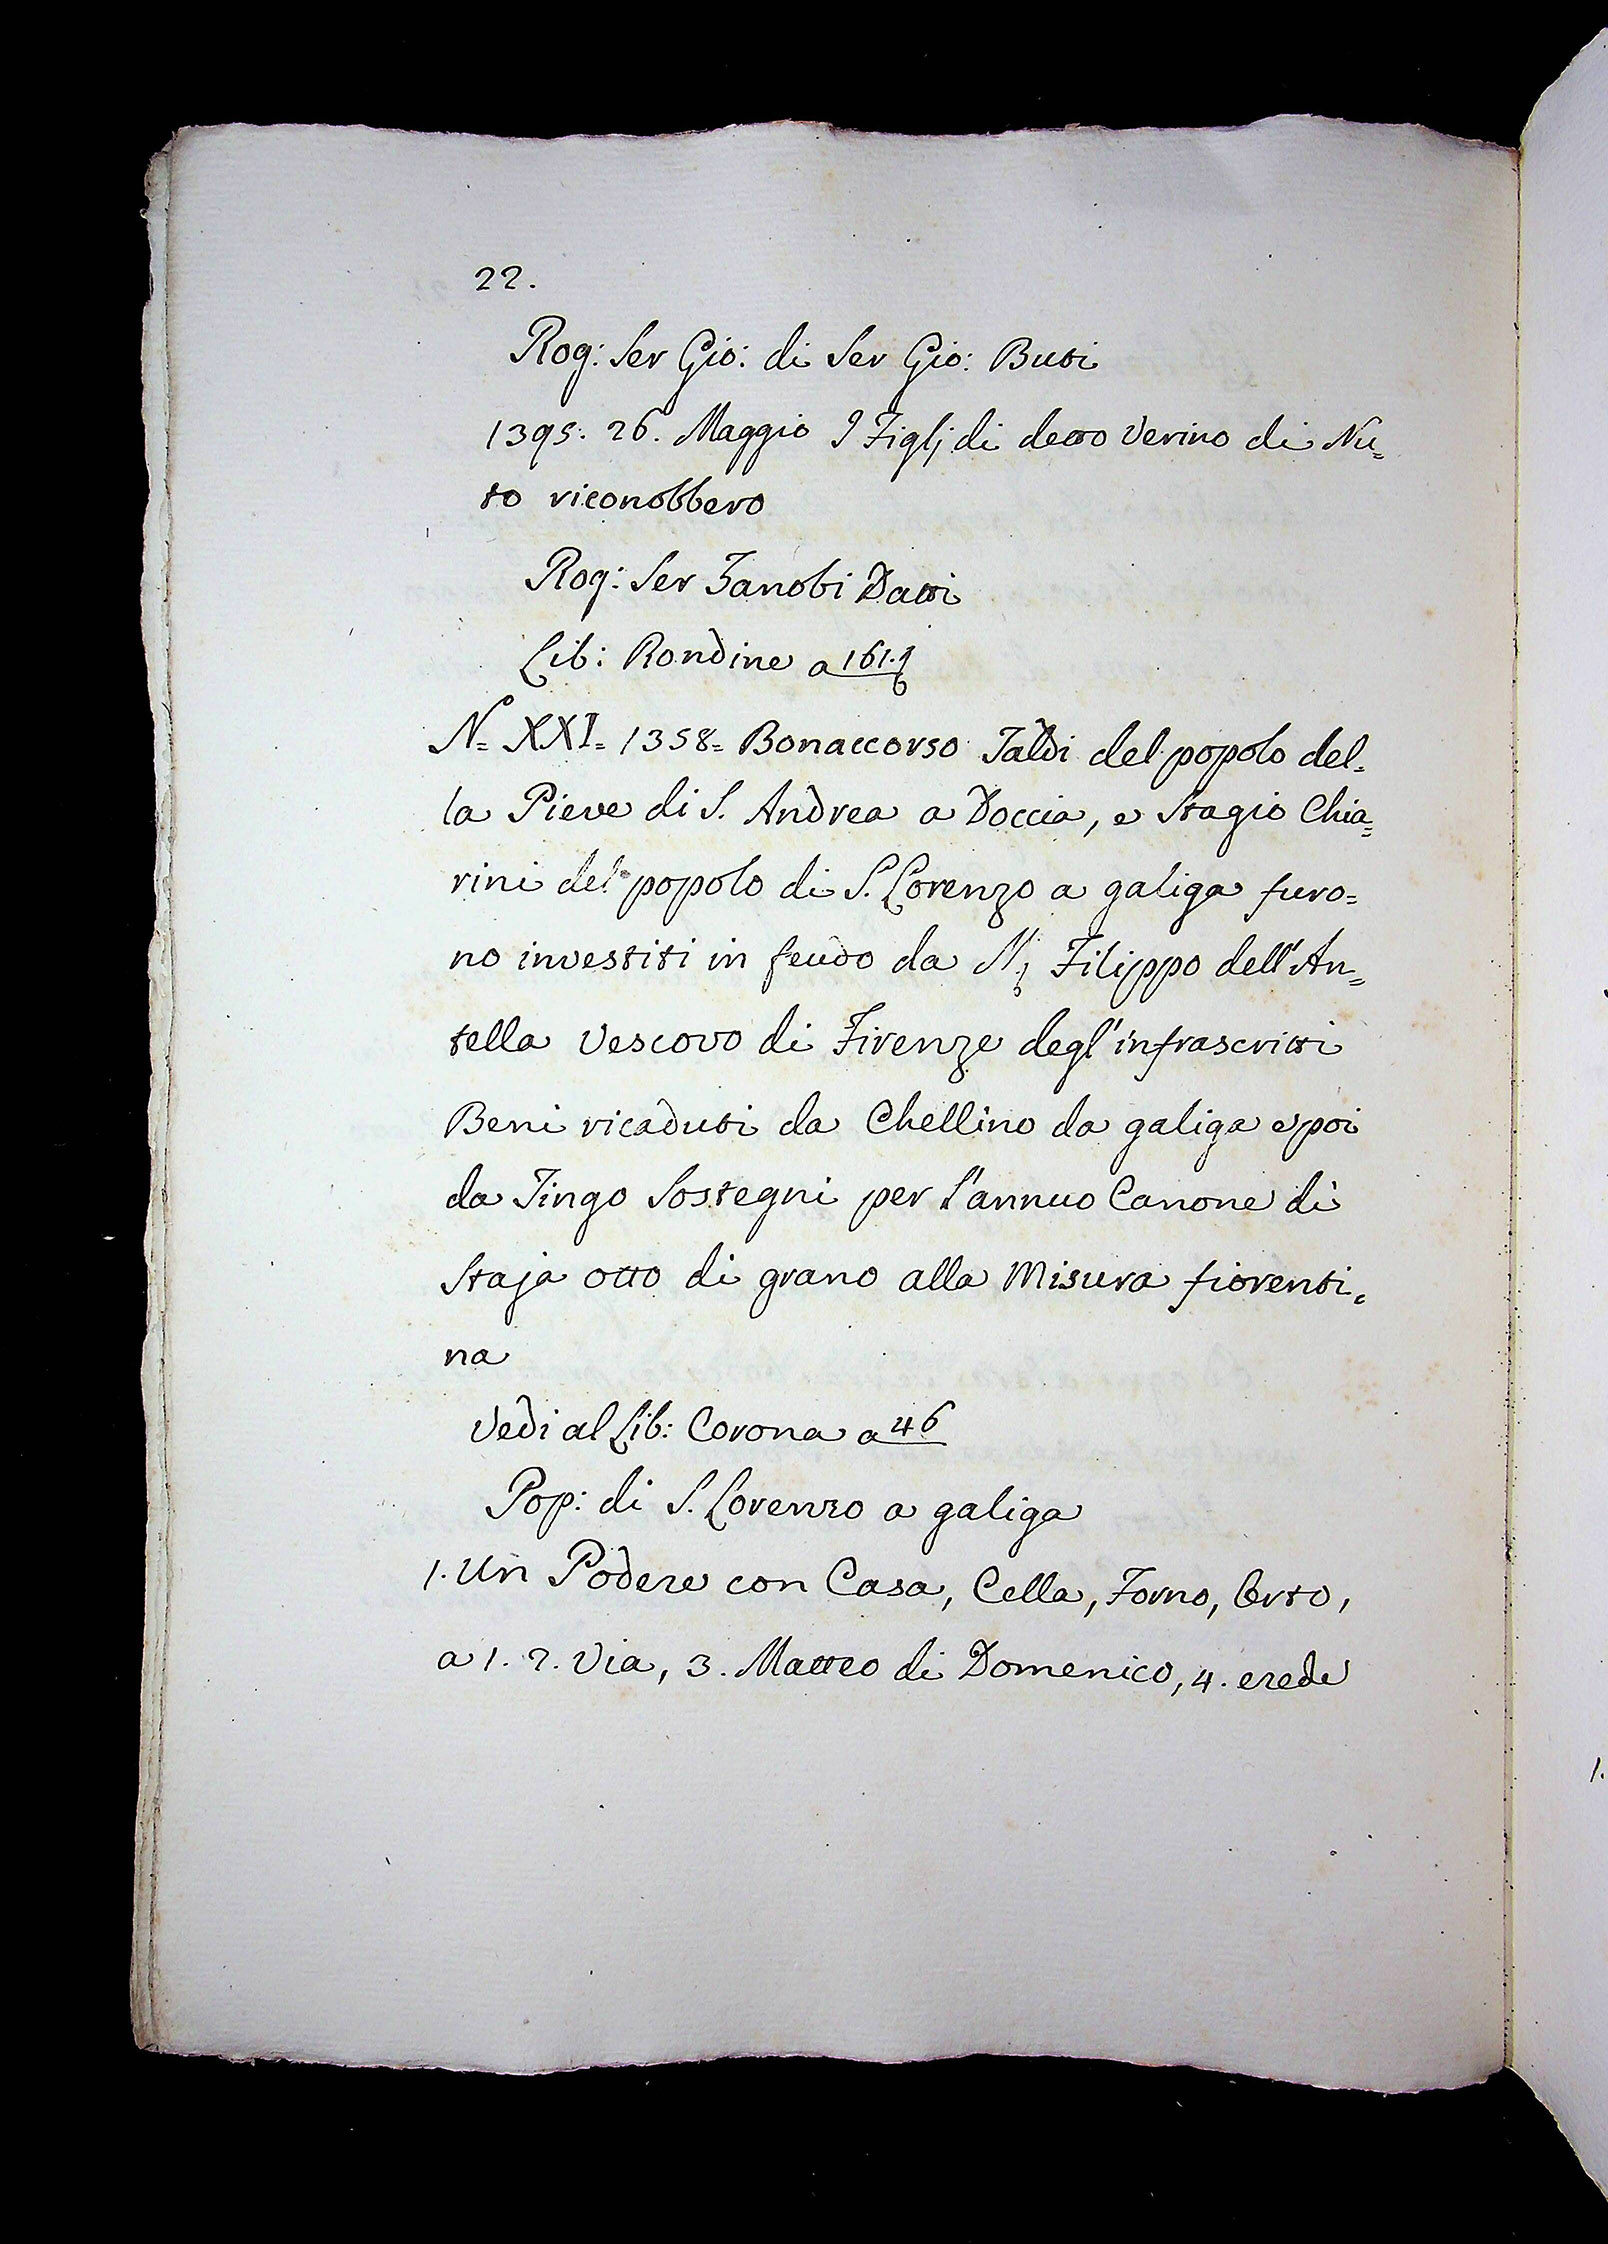 22.
Rog: Ser Gio: di Ser Gio: Buti
1395. 26. Maggio I Figlj di detto Verino di Nu=
to riconobbero
Rog: Ser Zanobi Datti
Lib: Rondine a 161.
N= XXI= 1358= Bonaccorso Taldi del popolo del=
la Pieve di S. Andrea a Doccia, e Stagio Chia=
rini del popolo di S. Lorenzo a galiga furo=
no investiti in feudo da M. Filippo dell'An=
tella Vescovo di Firenze degl'infrascritti
Beni ricaduti da Chellino da galiga e poi
da Tingo Sostegni per l'annuo Canone di
Staja otto di grano alla Misura fiorenti=
na
Vedi al Lib: Corona a 46
Pop: di S. Lorenzo a galiga
1. Un Podere con Casa, Cella, Forno, Orto,
a 1. 2. Via, 3. Matteo di Domenico, 4. erede
1.